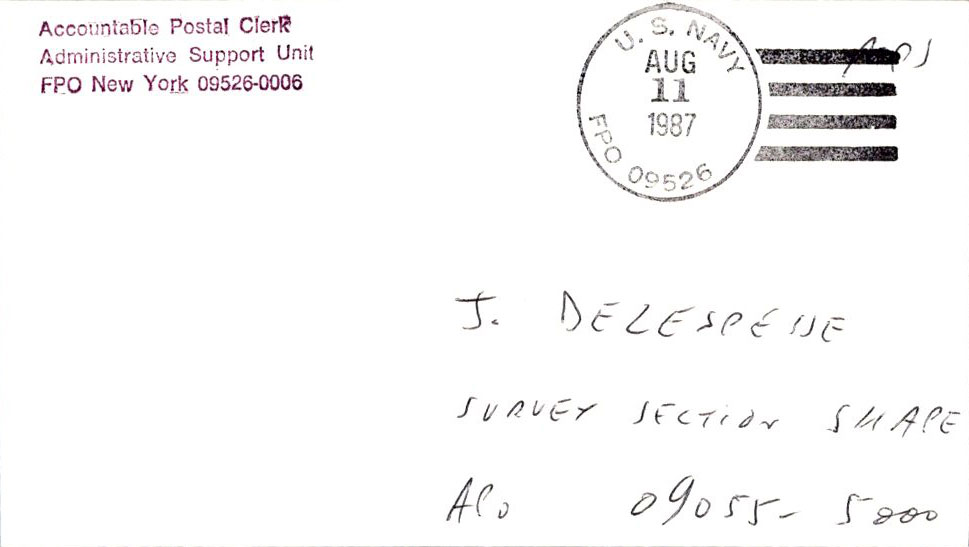 Accountable Postal Clerk
Administrative Support Unit
FPO New York 09526-0006
U. S. NAVY
AUG
11
1987
FPO 09526
J.
SURVEY SECTION SHAPE
APO 09055-5000